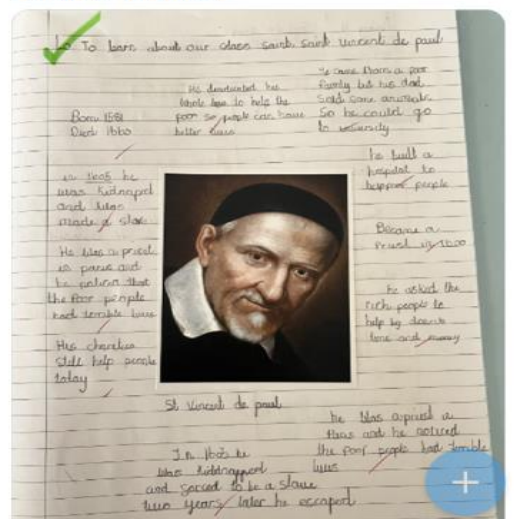 Lo To learn about our class saint saint vincent de paul
Born 1581
Died 1660
He deadicated his
whole live to help the
poor so people can have
better lives
He came from a poor
family but his dad
sold some animals
So he could go
to
he built a
hospital to
people
in 1605 he
was kidnapped
and was
made a slave
Became a
Priest in 1600
He was a priest
in paris and
he that
the Poor people
had terrible lives
he asked the
rich people to
help by
time and money
His charities
still help people
today
St Vincent de paul
he was a priest in
Paris and he noticed
the poor people had terrible
lives
In 1605 he
was
and to be a slave
two years later he escaped